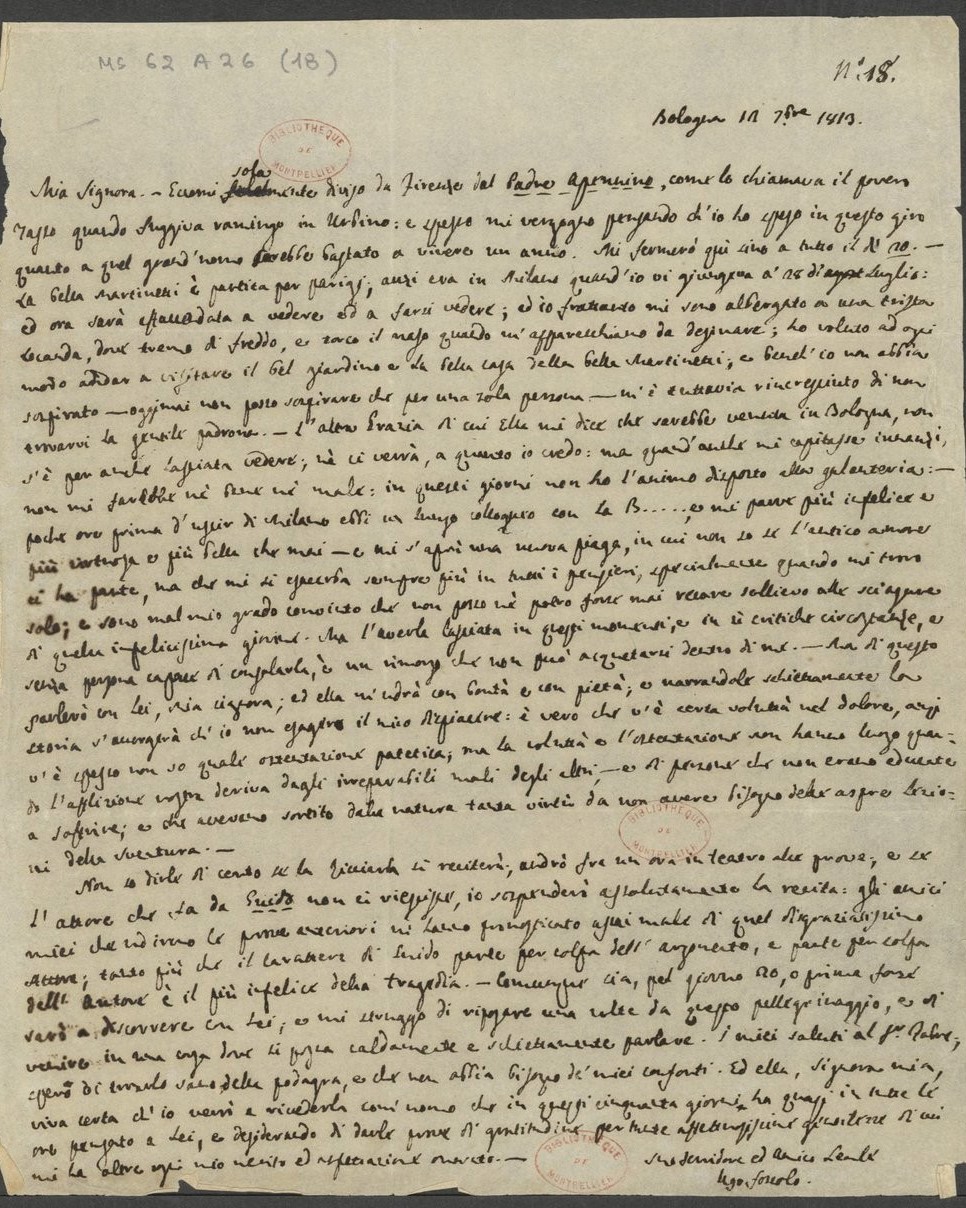 MS 62 A 26 (18)
N.º 18.
Bologna 12 7.bre 1813.
BIBLIOTHEQUE DE MONTPELLIER
sola
Mia Signora. – Eccomi mente diviso da Firenze dal Padre Apennino, come lo chiamava il povero
Tasso quando fuggiva ramingo in Urbino: e spesso mi vergogno pensando ch'io ho speso in questo giro
quanto a quel grand'uomo sarebbe bastato a vivere un anno. Mi fermerò qui sino a tutto il dì 20. –
La bella Martinetti è partita per Parigi; anzi era in Milano quand'io vi giungeva a' 28 di Luglio:
ed ora sarà affaccendata a vedere ed a farsi vedere; ed io frattanto mi sono albergato a una trista
locanda, dove tremo di freddo, e torco il naso quando m'apparecchiano da desinare; ho voluto ad ogni
modo andar a visitare il bel giardino e la bella casa della bella Martinetti; e bench'io non abbia
sospirato – oggimai non posso sospirare che per una sola persona – m'è tuttavia rincresciuto di non
trovarvi la gentile padrona. – L'altra Grazia di cui Ella mi dice che sarebbe venuta in Bologna, non
s'è per anche lasciata vedere; nè ci verrà, a quanto io credo: ma quand'anche mi capitasse innanzi,
non mi farebbe nè bene nè male: in questi giorni non ho l'animo disposto alla galanteria: –
poche ore prima d'uscir di Milano ebbi un lungo colloquio con la B..... e mi parve più infelice e
più virtuosa e più bella che mai – e mi s'aprì una nuova piaga, in cui non so se l'antico amore
ci ha parte, ma che mi si esacerba sempre più in tutti i pensieri, specialmente quando mi trovo
solo; e sono mal mio grado convinto che non posso nè potrò forse mai recare sollievo alle sciagure
di quella infelicissima giovine. Ma l'averla lasciata in questi momenti, e in sì critiche circostanze, e
senza persona capace di consolarla, è un rimorso che non può acquetarsi dentro di me. – Ma di questo
parlerò con Lei, Mia Signora; ed ella m'udrà con bontà e con pietà; e narrandole schiettamente la
storia s'accorgerà ch'io non esagero il mio dispiacere: è vero che v'è certa voluttà nel dolore, anzi
v'è spesso non so quale ostentazione patetica; ma la voluttà e l'ostentazione non hanno luogo quan-
do l'afflizione nostra deriva dagli irreparabili mali degli altri, – e di persone che non erano educate
a soffrire; e che avevano sortito dalla natura tanta virtù da non avere bisogno delle aspre lezio-
ni della sventura. –
BIBLIOTHEQUE DE MONTPELLIER
Non so dirle di certo se la Ricciarda si reciterà; andrò fra un'ora in teatro alle prove; e se
l'attore che fa da Guido non ci riescisse, io sospenderò assolutamente la recita: gli amici
miei che udirono le prove anteriori mi hanno pronosticato assai male di quel disgraziatissimo
Attore; tanto più che il carattere di Guido parte per colpa dell'argomento, e parte per colpa
dell'Autore è il più infelice della tragedia. – Comunque sia, pel giorno 20, o prima forse
sarò a discorrere con Lei; e mi struggo di riposare una volta da questo pellegrinaggio, e di
venire in una casa dove si possa caldamente e schiettamente parlare. I miei saluti al Sr. Fabre;
spero di trovarlo sano della podagra, e che non abbia bisogno de' miei conforti. Ed ella, Signora mia,
viva certa ch'io verrò a rivederla com'uomo che in questi cinquanta giorni ha quasi in tutte le
ore pensato a Lei, e desiderando di darle prove di gratitudine per tante affettuosissime di cui
mi ha oltre ogni mio merito ed aspettazione onorato. –
BIBLIOTHEQUE DE MONTPELLIER
Suo Servidore ed Amico Leale
Ugo Foscolo.